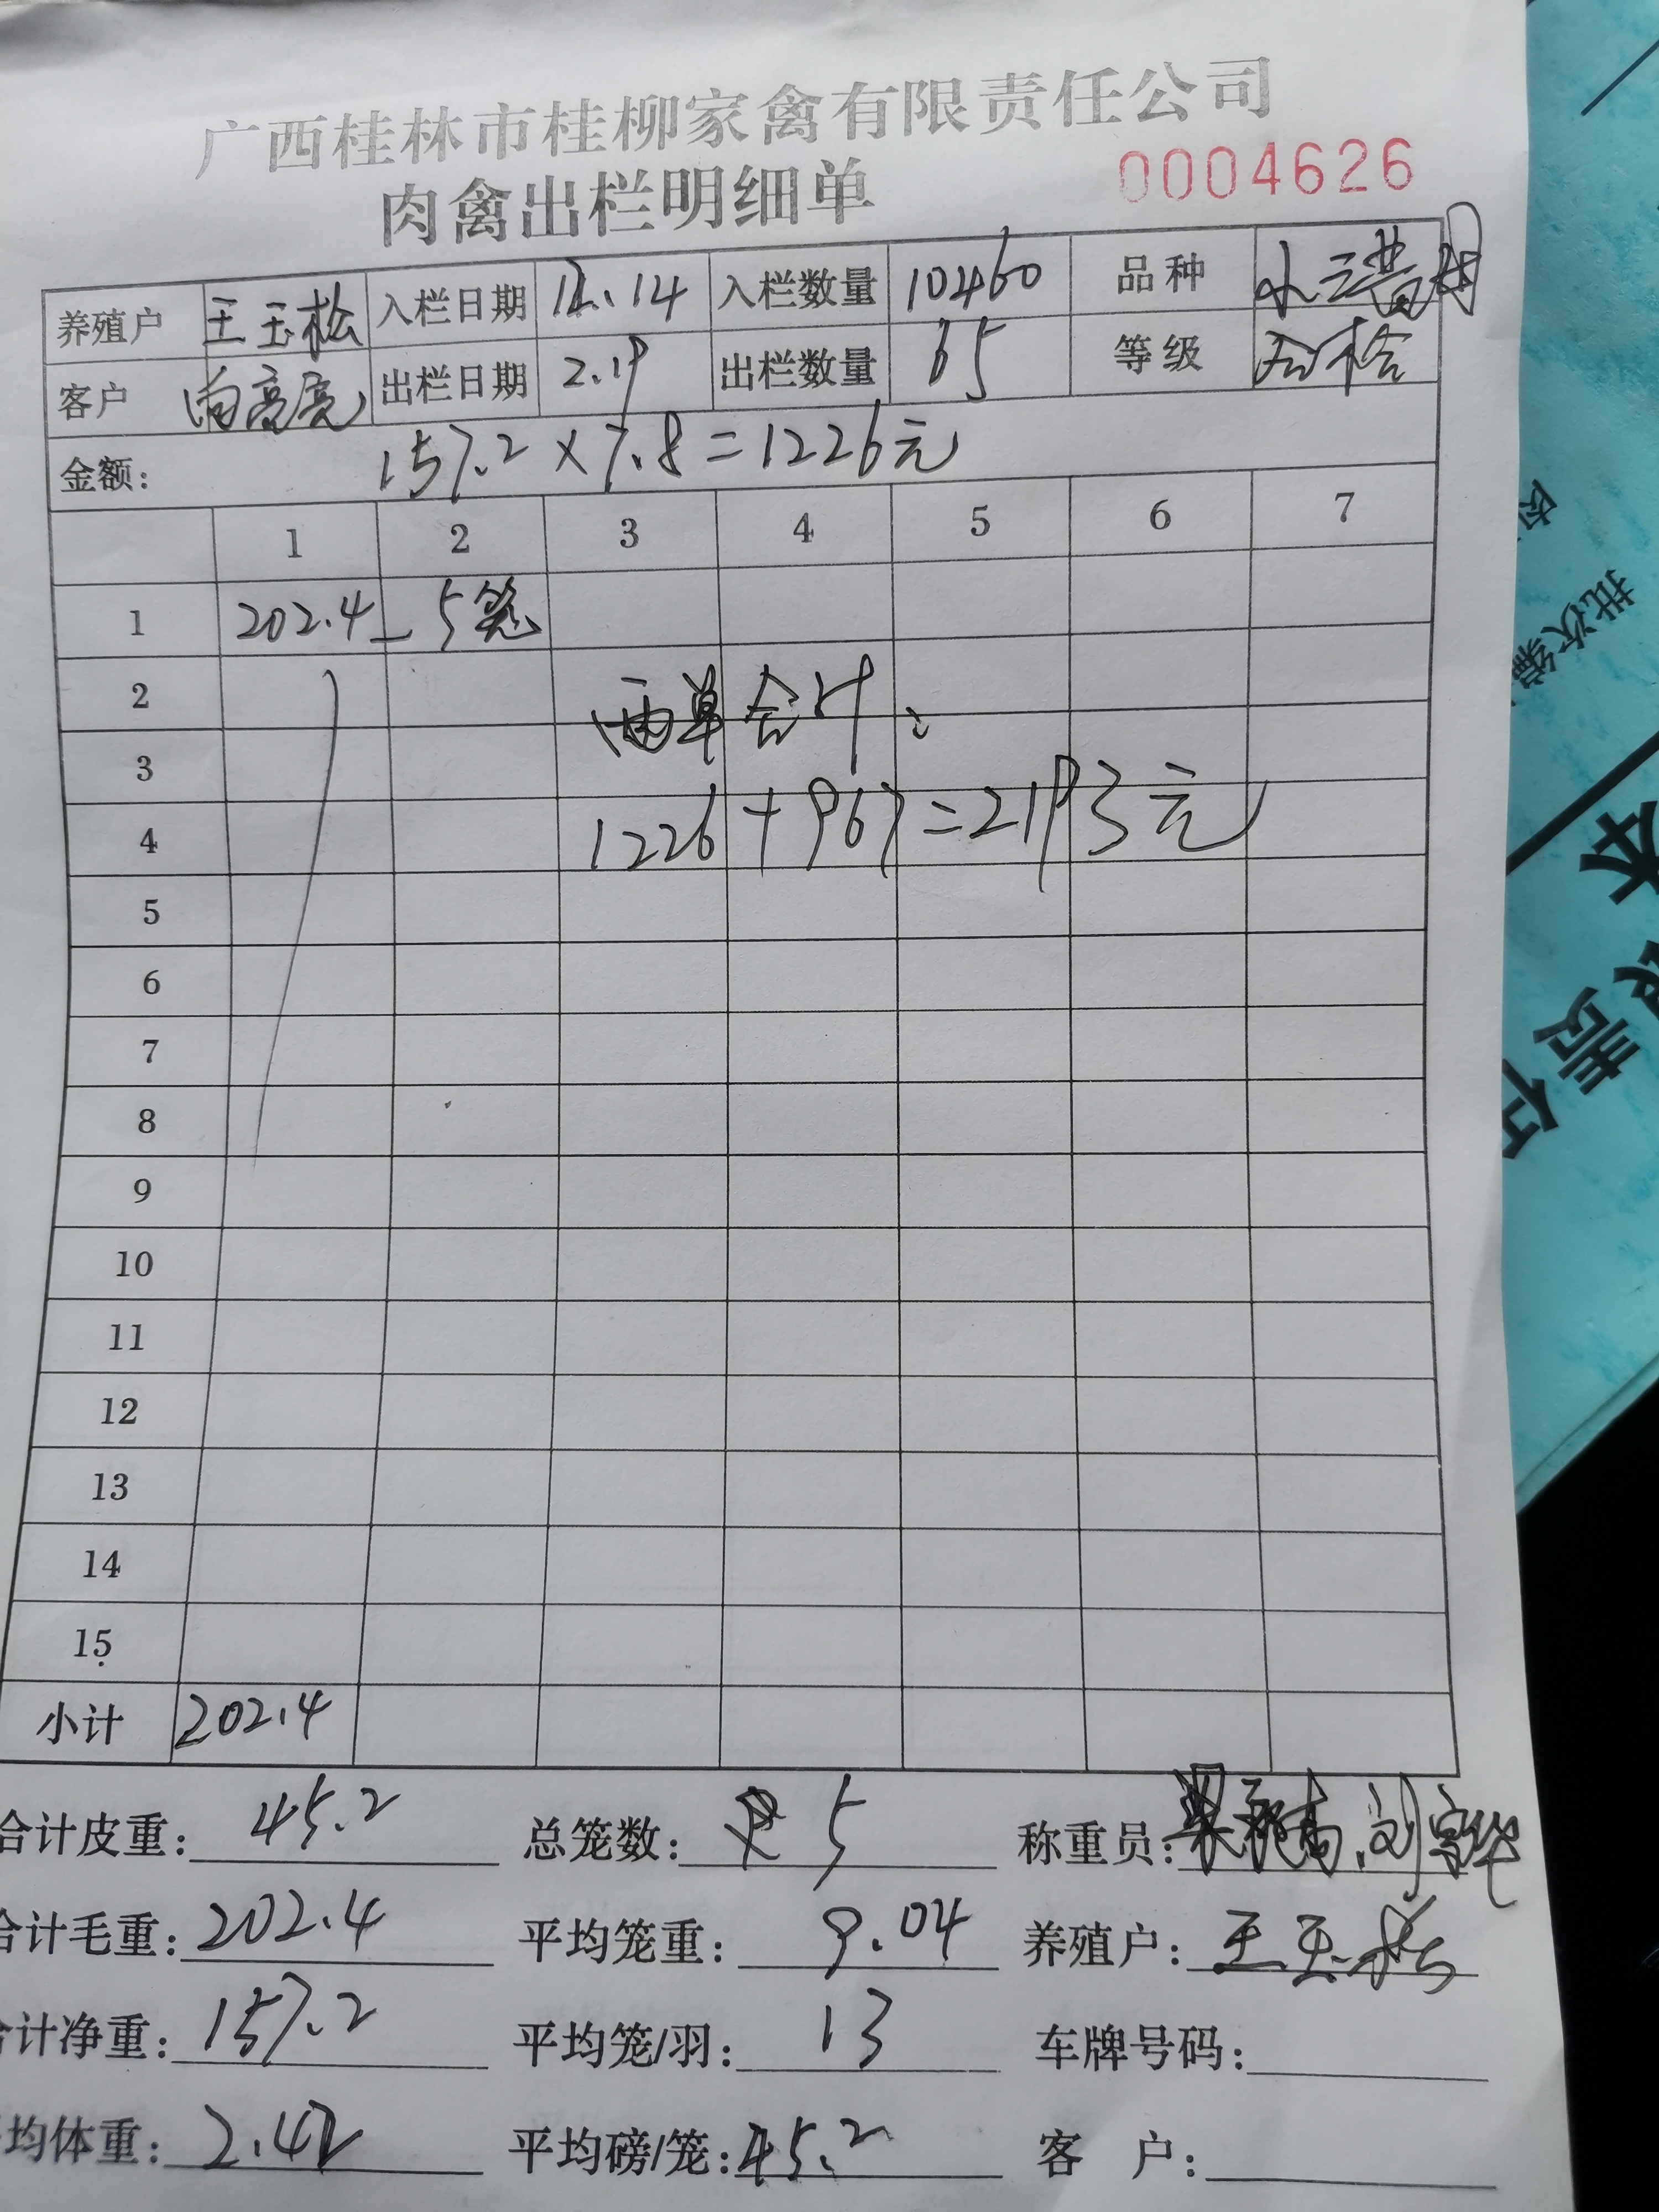 广西桂林市桂柳家禽有限责任公司
肉禽出栏明细单 0004626
养殖户 王玉松 入栏日期 12.14 入栏数量 10460 品种
客户 向高亮 出栏日期 2.19 出栏数量 65 等级 合格
金额: 157.2×7.8=1226元
1 2 3 4 5 6 7
1 202.4 5笼
2 两单合计:
3
4 1226+967=2193元
5
6
7
8
9
10
11
12
13
14
15
小计 202.4
合计皮重: 45.2 总笼数: 5 称重员:
合计毛重: 202.4 平均笼重: 9.04 养殖户: 王玉松
合计净重: 157.2 平均笼/羽: 13 车牌号码:
均体重: 2.42 平均磅/笼: 45.2 客 户:
肉
批次编
本
责任